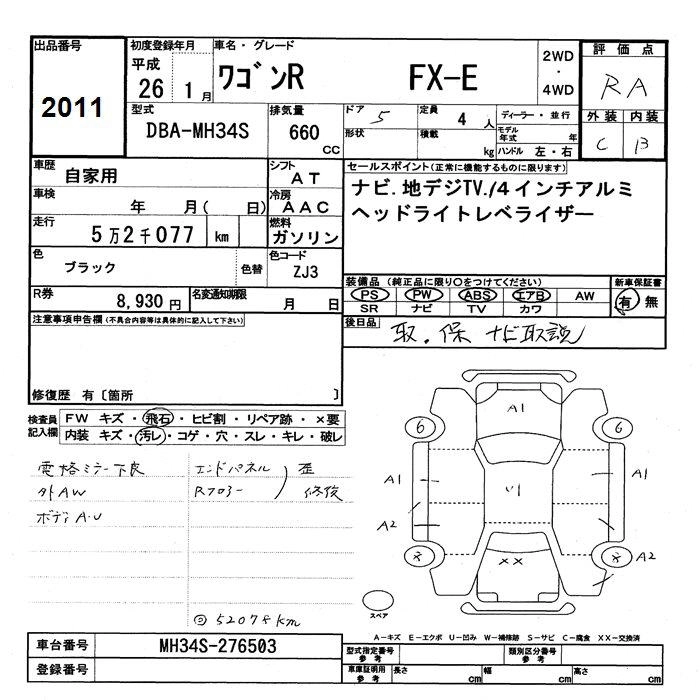 出品番号
2011
初度登録年月
平成
26 1 月
車名・グレード
ワゴンR FX-E
2WD
・
4WD
評価点
RA
外装 内装
C B
型式
DBA-MH34S
排気量
660
CC
ドア
5
形状
定員
4 人
積載
kg
ディーラー・並行
モデル年式 年
ハンドル 左・右
車歴
自家用
シフト
AT
車検
年 月( 日)
冷房
AAC
走行
5万2千077 km
燃料
ガソリン
色
ブラック
色替
色コード
ZJ3
R券
8,930 円
名変通知期限
月 日
セールスポイント(正常に機能するものに限ります)
ナビ.地デジTV./4インチアルミ
ヘッドライトレベライザー
装備品(純正品に限り○をつけてください)
PS PW ABS エアB AW
SR ナビ TV カワ
新車保証書
有 無
後日品
取.保 ナビ取説
注意事項申告欄(不具合内容等は具体的に記入して下さい)
修復歴 有〔箇所 〕
検査員記入欄
FW キズ・飛石・ヒビ割・リペア跡・×要
内装 キズ・汚レ・コゲ・穴・スレ・キレ・破レ
電格ミラー不良
外AW
ボディA.U
エンドパネル
Rフロアー
歪
修復
52078km
A1
6 6
A1 A1
A2
××
A2
スペア
A-キズ E-エクボ U-凹み W-補修跡 S-サビ C-腐食 XX-交換済
車台番号
MH34S-276503
登録番号
型式指定番号
参考
類別区分番号
参考
車庫証明用
参考
長さ cm
幅 cm
高さ cm